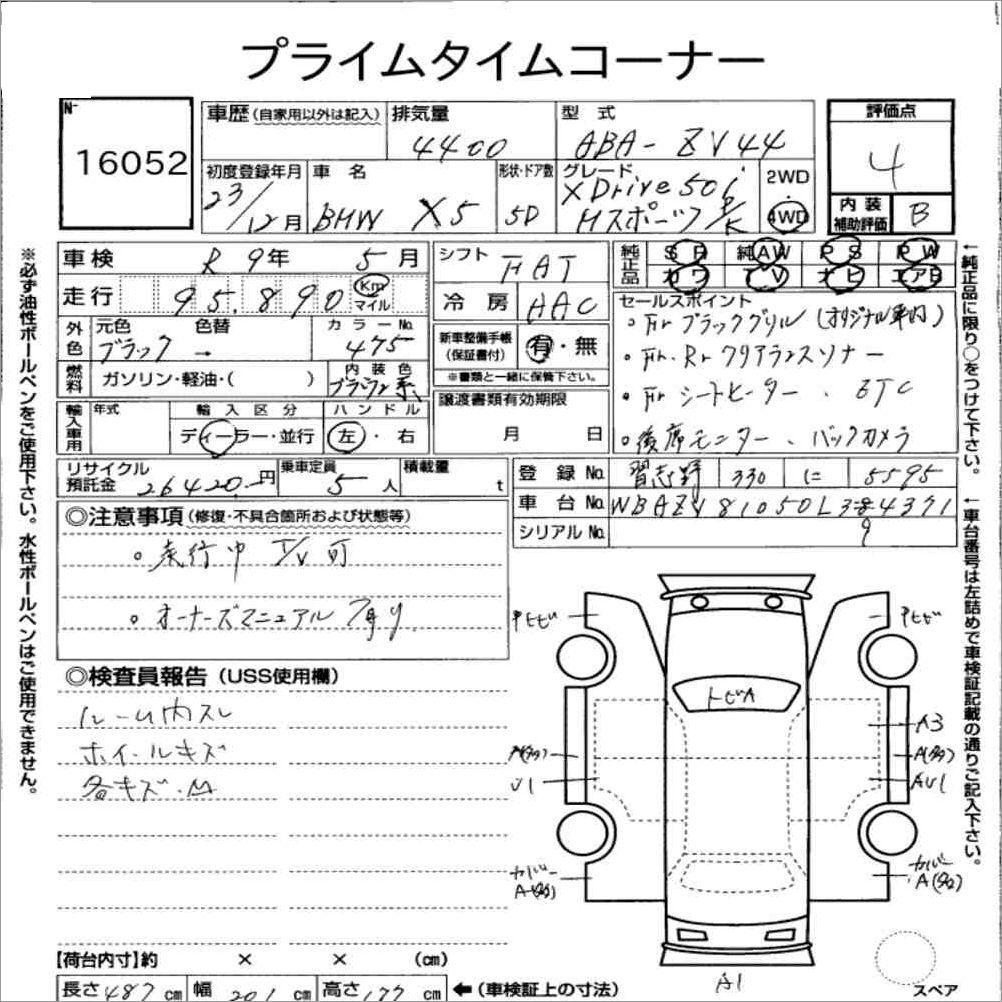 プライムタイムコーナー
16052
車歴 (自家用以外は記入)
排気量
4400
型 式
ABA- ZV44
評価点
4
初度登録年月
23/12月
車 名
BMW X5
形状・ドア数
5D
グレード
XDrive50i
Mスポーツ P/K
2WD
・
4WD
内 装
補助評価
B
車検 R 9年 5月
走行 95,890 Km
マイル
外色
元色 色替
ブラック →
カラーNo.
475
燃料
ガソリン・軽油・( )
内 装 色
輸入車用
年式
輸 入 区 分
ディーラー・並行
ハ ン ド ル
左・右
シフト FAT
冷 房 AAC
新車整備手帳
(保証書付)
有・無
※書類と一緒に保管下さい。
譲渡書類有効期限
月 日
純正品
SR 純AW PS PW
カワ TV ナビ エアB
セールスポイント
○Fr ブラックグリル (オリジナル車内)
○Fr.Rr クリアランスソナー
○Fr シートヒーター、ETC
○後席モニター、バックカメラ
リサイクル
預託金
26420円
乗車定員
5人
積載量
t
登 録 No. 習志野 330 に 5595
車 台 No.
シリアルNo.
◎注意事項(修復・不具合箇所および状態等)
○走行中 T/V 可
○オーナーズマニュアル
◎検査員報告(USS使用欄)
ルーム内スレ
ホイールキズ
各キズ.凹
中ヒビ
中ヒビ
トビA
A3
A(多)
A(多)
U1
AU1
カバー
A(多)
カバー
A(多)
A1
スペア
【荷台内寸】約 × × (cm)
長さ487cm 幅 201cm 高さ177cm ←(車検証上の寸法)
※必ず油性ボールペンをご使用下さい。水性ボールペンはご使用できません。
←純正品に限り○をつけて下さい。
←車台番号は左詰めで車検証記載の通りご記入下さい。